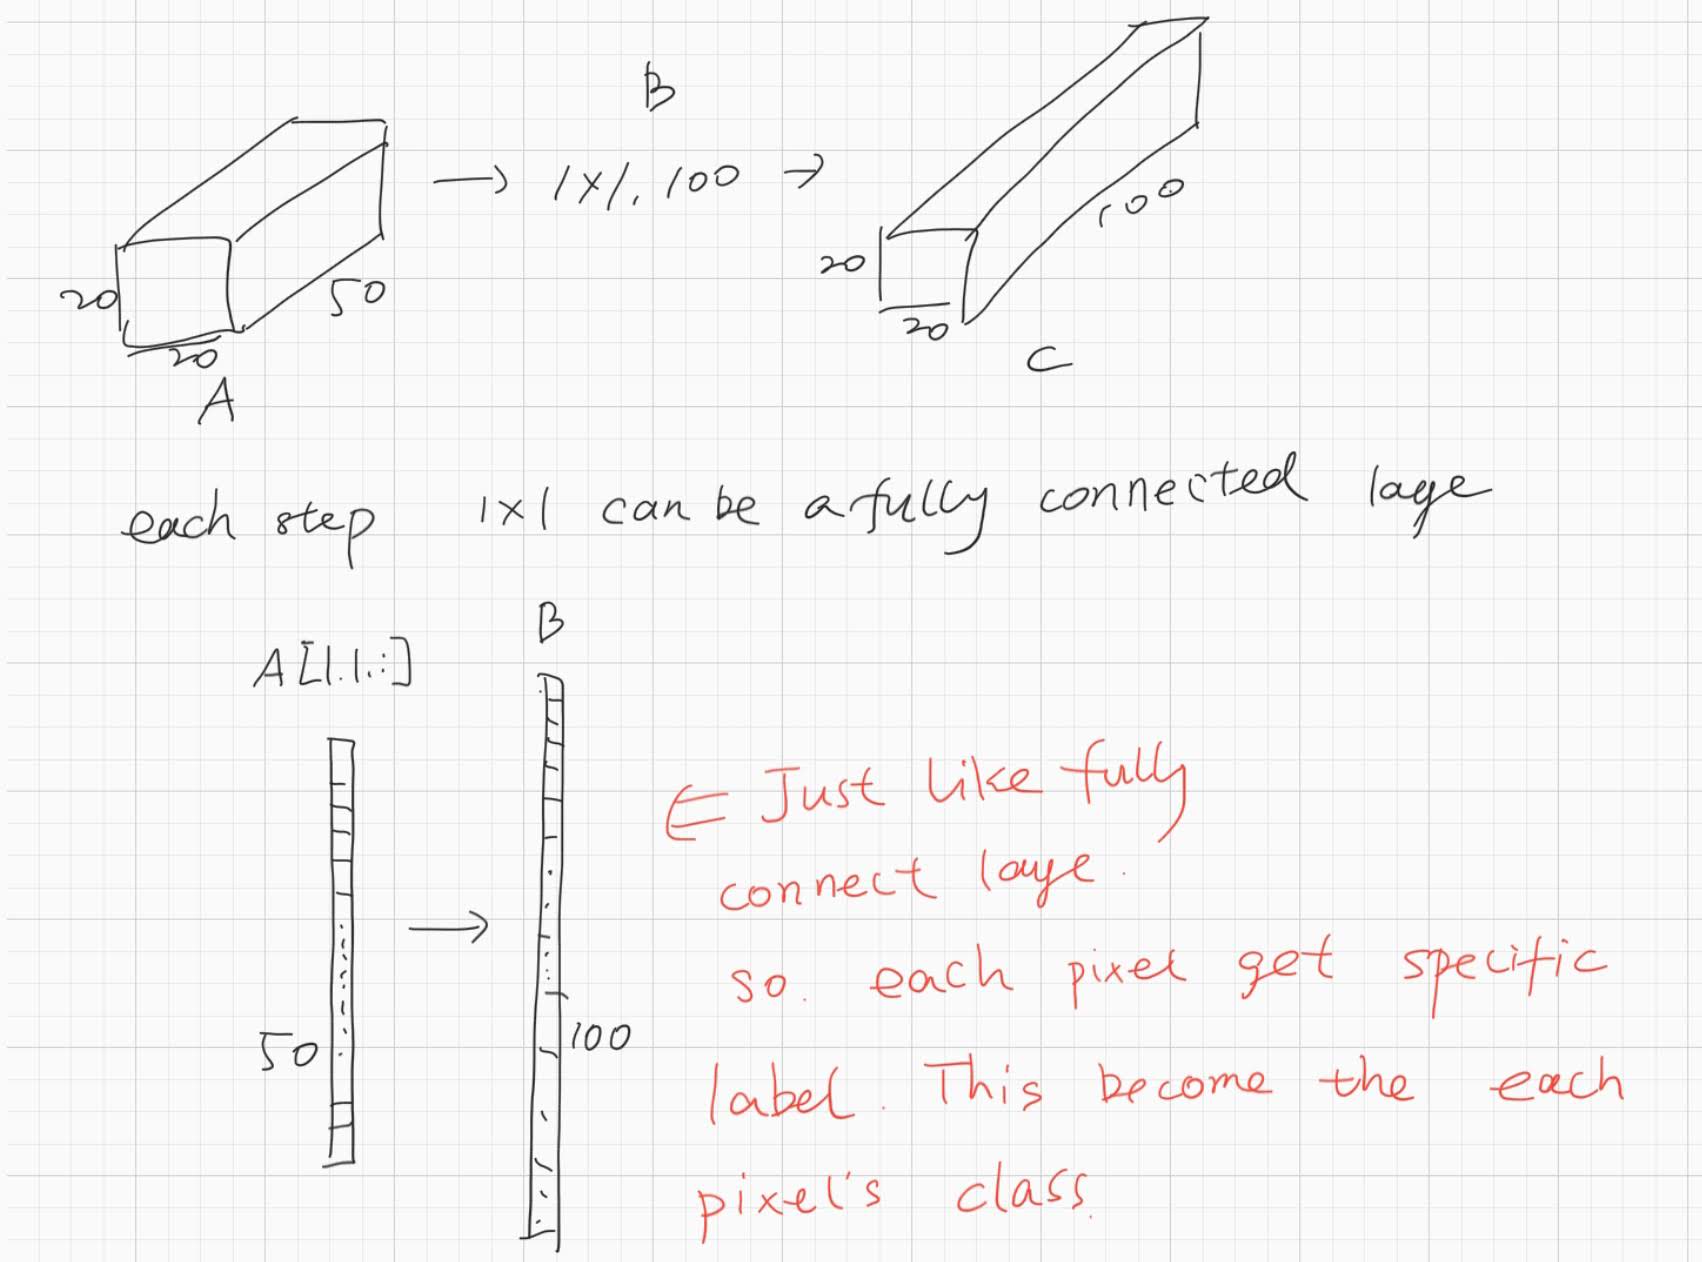 B
→ 1×1, 100 →
20
50
20
A
20
100
20
C
each step 1×1 can be a fully connected laye
A[1.1.:]
B
50
→
100
⇐ Just like fully
connect laye.
so. each pixel get specific
label. This become the each
pixel's class.